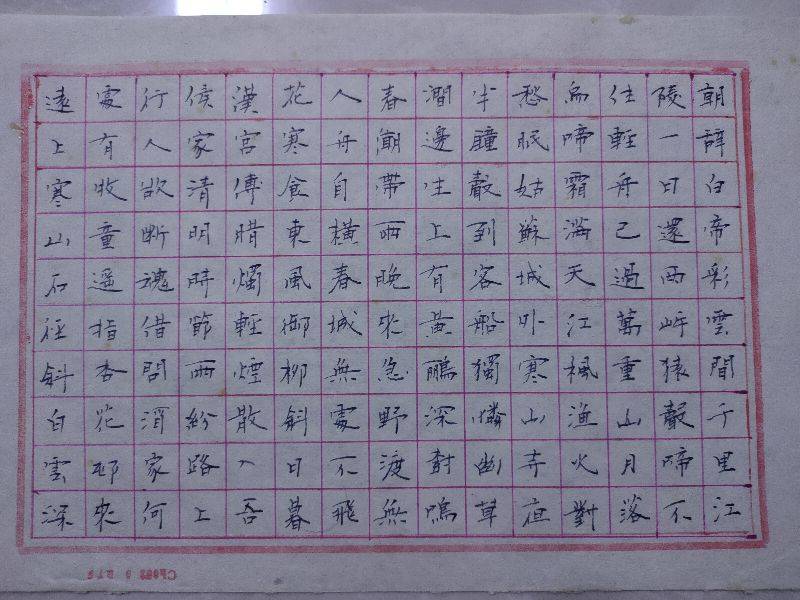 朝辭白帝彩雲間千里江
陵一日還兩岍猿聲啼不
住輕舟已過萬重山月落
烏啼霜滿天江楓漁火對
愁眠姑蘇城外寒山寺夜
半鐘聲到客船獨憐幽草
澗邊生上有黃鸝深樹鳴
春潮帶雨晚來急野渡無
人舟自橫春城無處不飛
花寒食東風御柳斜日暮
漢宮傳腊燭輕煙散入吾
侯家清明時節雨紛路上
行人欲斷魂借問酒家何
處有牧童遥指杏花邨來
遠上寒山石径斜白雲深